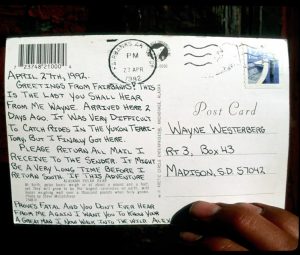 7 23748 21000 4
FAIRBANKS AK
PM
27 APR
1992
APRIL 27TH, 1992.
GREETINGS FROM FAIRBANKS! THIS
IS THE LAST YOU SHALL HEAR
FROM ME WAYNE. ARRIVED HERE 2
DAYS AGO. IT WAS VERY DIFFICULT
TO CATCH RIDES IN THE YUKON TERRI-
TORY. BUT I FINALLY GOT HERE.
PLEASE RETURN ALL MAIL I
RECEIVE TO THE SENDER. IT MIGHT
BE A VERY LONG TIME BEFORE I
RETURN SOUTH. IF THIS ADVENTURE
PROVES FATAL AND YOU DON'T EVER HEAR
FROM ME AGAIN I WANT YOU TO KNOW YOUR
A GREAT MAN. I NOW WALK INTO THE WILD. ALEX
Post Card
WAYNE WESTERBERG
RT 3, BOX 43
MADISON, S.D. 57042